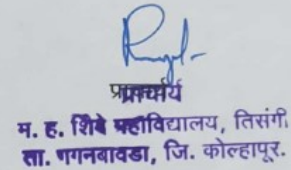 प्राचार्य
म. ह. शिंदे महाविद्यालय, तिसंगी.
ता. गगनबावडा, जि. कोल्हापूर.